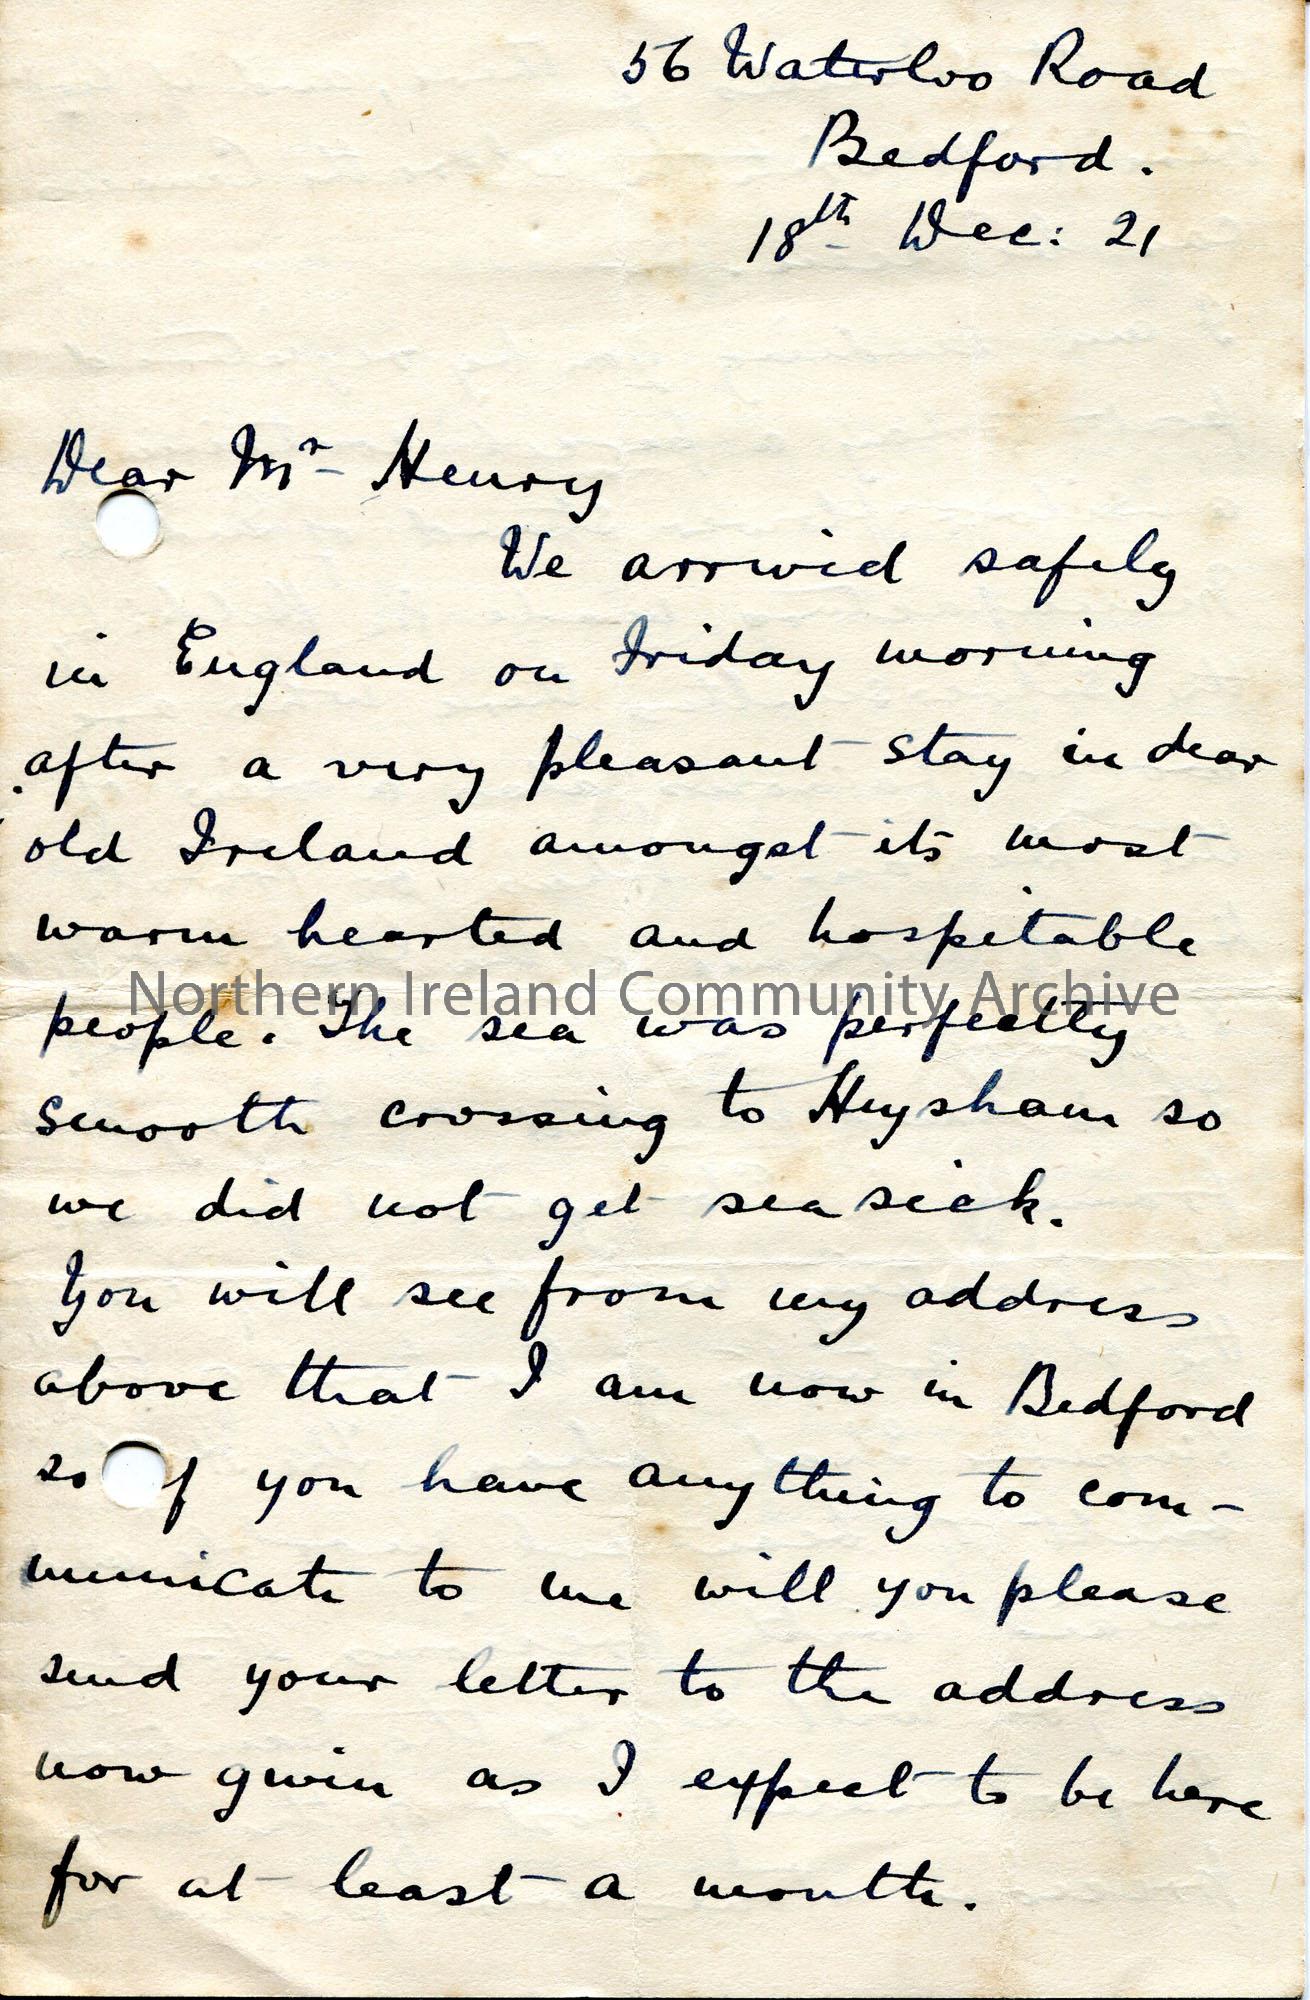 56 Waterloo Road
Bedford.
18th Dec: 21
Dear Mr Henry
We arrived safely
in England on Friday morning
after a very pleasant stay in dear
old Ireland amongst its most
warm hearted and hospitable
Northern Ireland Community Archive
people. The sea was perfectly
smooth crossing to Heysham so
we did not get sea sick.
You will see from my address
above that I am now in Bedford
so f you have anything to com-
municate to me will you please
send your letter to the address
now given as I expect to be here
for at least a month.